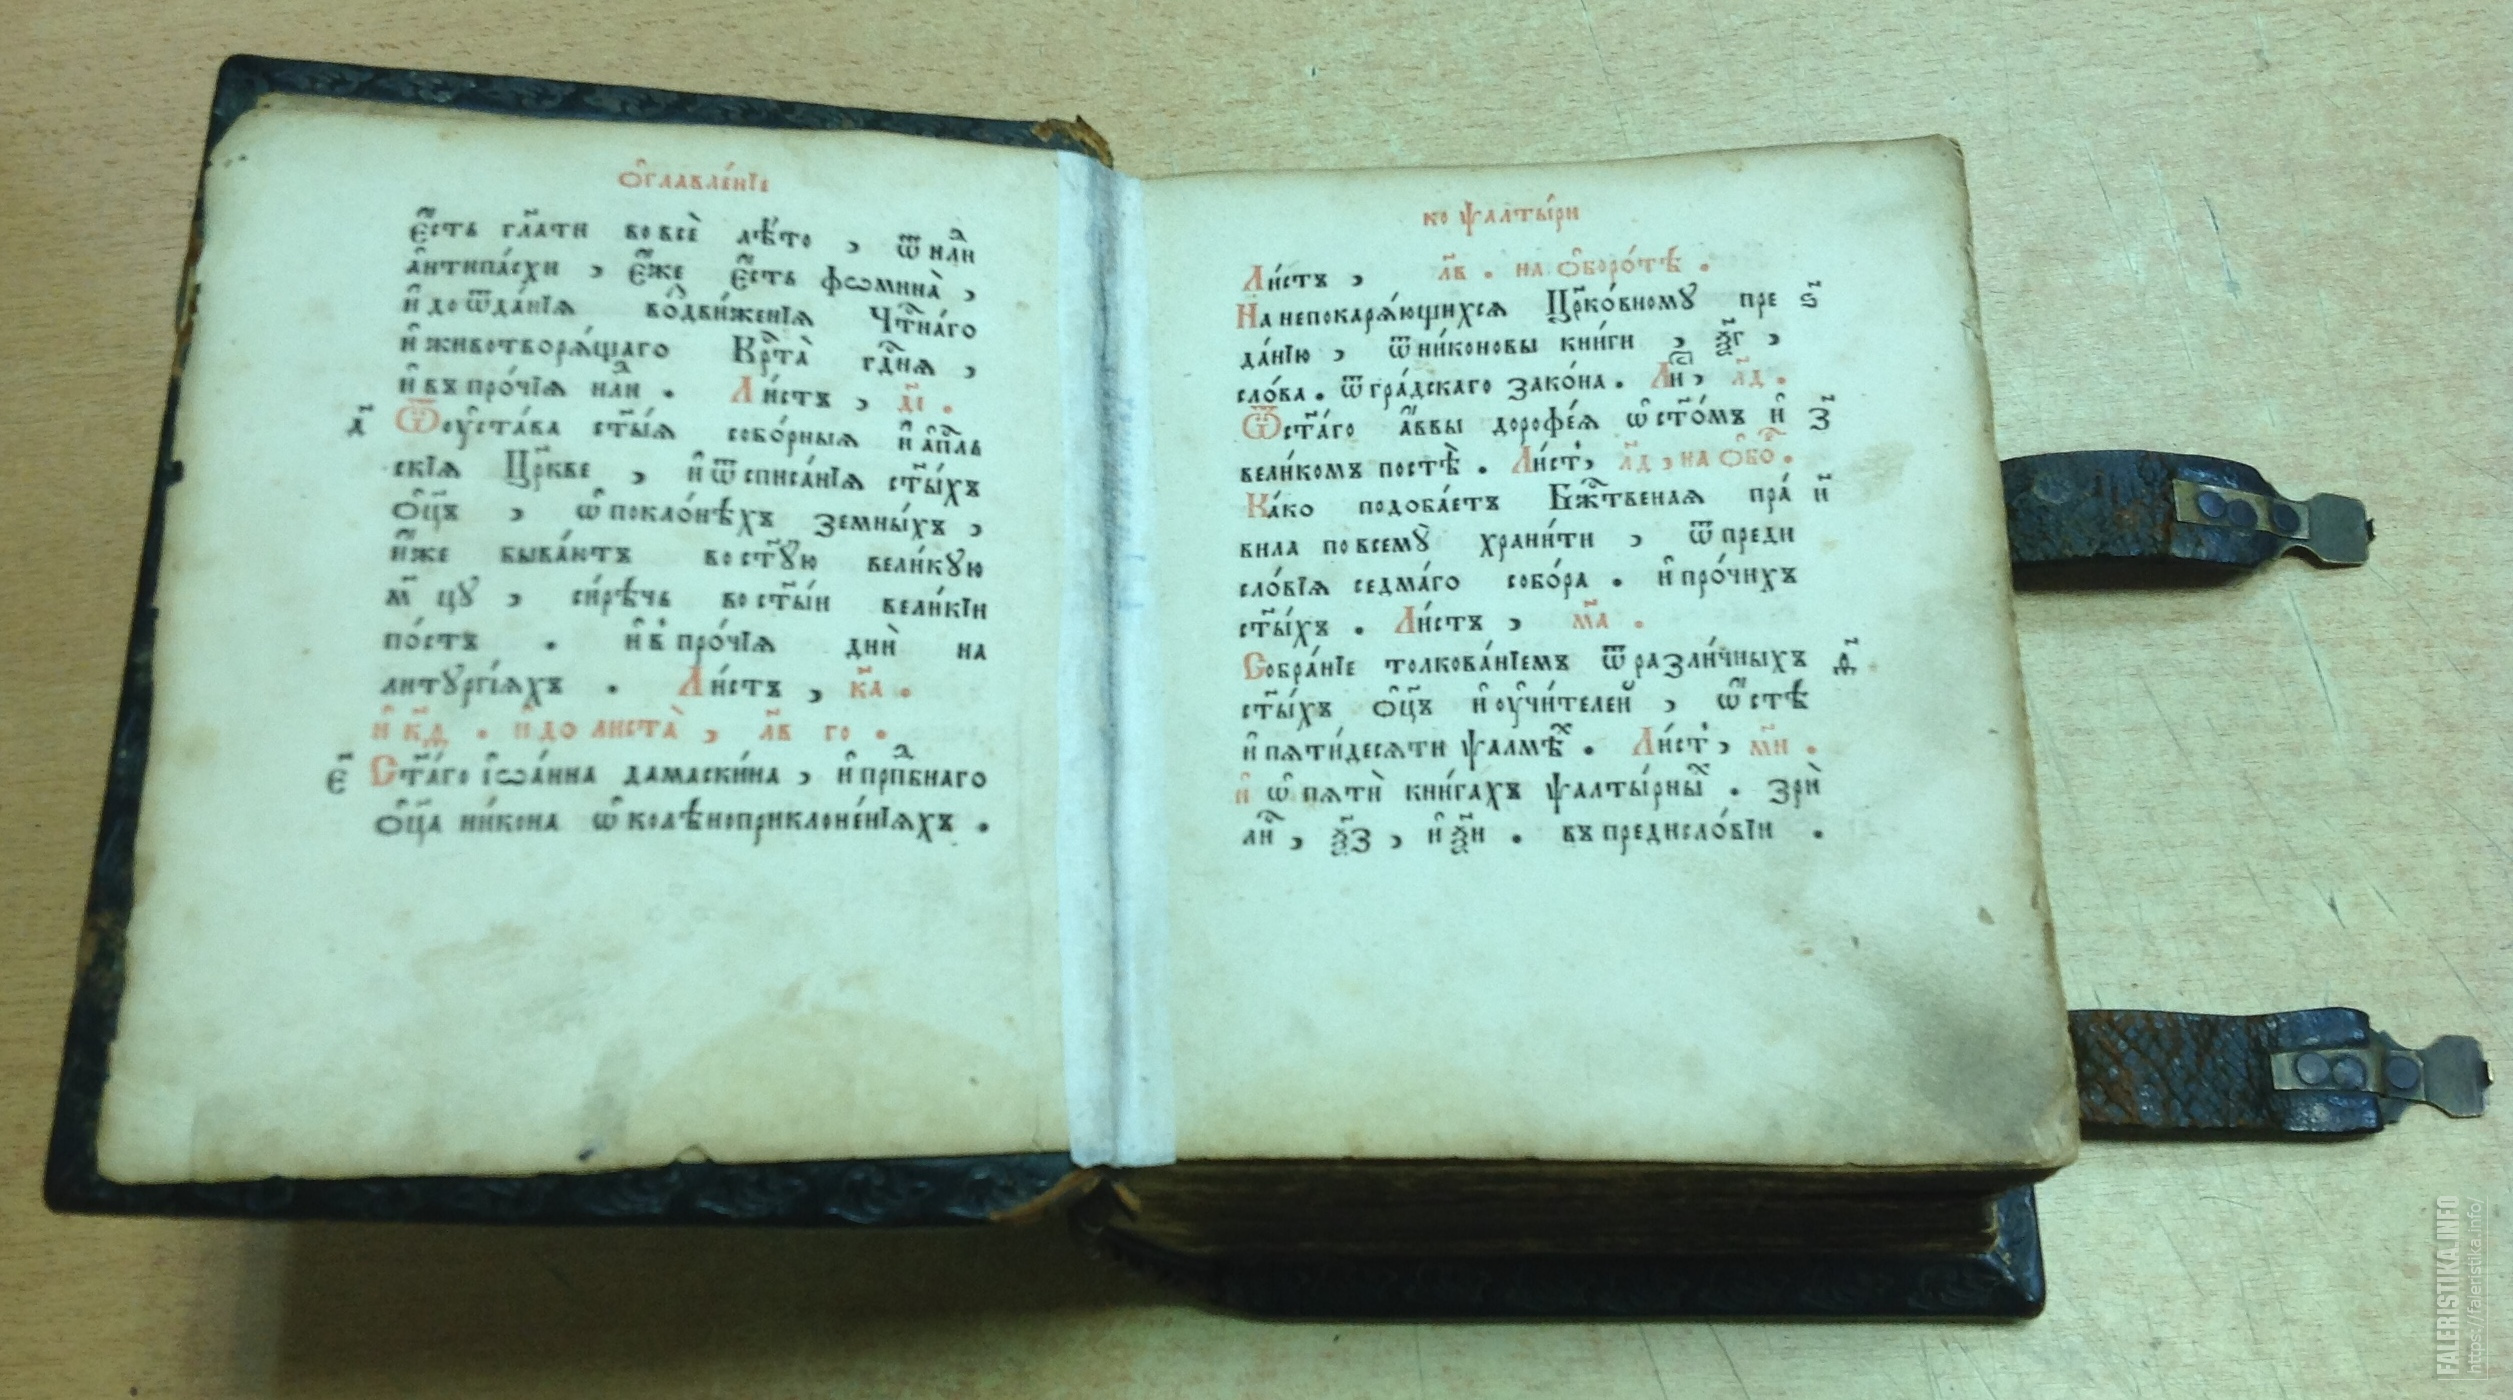 Ѻ҆главле́нїе
є҆́сть гл҃ати во всѐ лѣ́то , ѿ нлⷣи
а҆нтипа́схи , є҆́же є҆́сть фѡмина̀ ,
и҆ до ѿда́нїѧ во̑дви́женїѧ Чтⷭ҇на́го
и҆ животворѧ́щаго Крⷭ҇та̀ гдⷭ҇нѧ ,
и҆ въ про́чїѧ нлⷣи . Ли́стъ , д҃і .
д҃ Ѿ оу҆ста́ва ст҃ы́ѧ собо́рныѧ и҆ а҆пⷭ҇ль
скїѧ Цр҃кве , и҆ ѿ списа́нїѧ ст҃ы́хъ
ѻ҆ц҃ъ , ѡ҆ покло́нѣхъ земны́хъ ,
и҆́же быва́ютъ во ст҃ꙋ́ю вели́кꙋю
м҃ цꙋ , си́рѣчь во ст҃ы́и вели́кїи
по́стъ . и҆ в про́чїѧ дни̑ на
литꙋргі́ѧхъ . Ли́стъ , к҃а .
и҆ к҃д . и҆ до листа̀ , л҃в го .
є҃ Ст҃а́го і҆ѡа́нна дамаски́на , и҆ прпⷣбнаго
ѻ҆ц҃а ни́кона ѡ҆ колѣноприклоне́нїѧхъ .
ко ѱалты́ри
Ли́стъ , л҃в . на ѻ҆боро́тѣ .
На непокарѧ́ющихсѧ Цр҃ко́вномꙋ пре ѕ҃
да́нїю , ѿ ни́коновы кни́ги , ѯ҃г ,
сло́ва . ѿ гра́дскаго зако́на . Лиⷭ҇ , л҃д .
Ѿ ст҃а́го а҆́ввы дорофе́ѧ ѡ҆ ст҃о́мъ и҆ з҃
вели́комъ постѣ̀ . Ли́ст , л҃д , на ѻ҆боⷬ҇ .
Ка́ко подоба́етъ Бжⷭ҇твенаѧ пра́ и҃
вила по всемꙋ̀ храни́ти , ѿ преди
сло́вїѧ седма́го собо́ра . и҆ про́чихъ
ст҃ы́хъ . Ли́стъ , м҃а .
Собра́нїе толкова́нїемъ ѿ разли́чныхъ ѳ҃
ст҃ы́хъ ѻ҆ц҃ъ и҆ оу҆чи́телей , ѡ҆ стѣ̀
и҆ пѧти́десѧти ѱалмѣⷯ . Ли́ст , м҃и .
и҆ ѡ҆ пѧти̑ кни́гахъ ѱалты́рныⷯ . зри̑
лиⷭ҇ , ѯ҃з , и҆ ѯ҃и . въ предисло́вїи .
FALERISTIKA.INFO
https://faleristika.info/